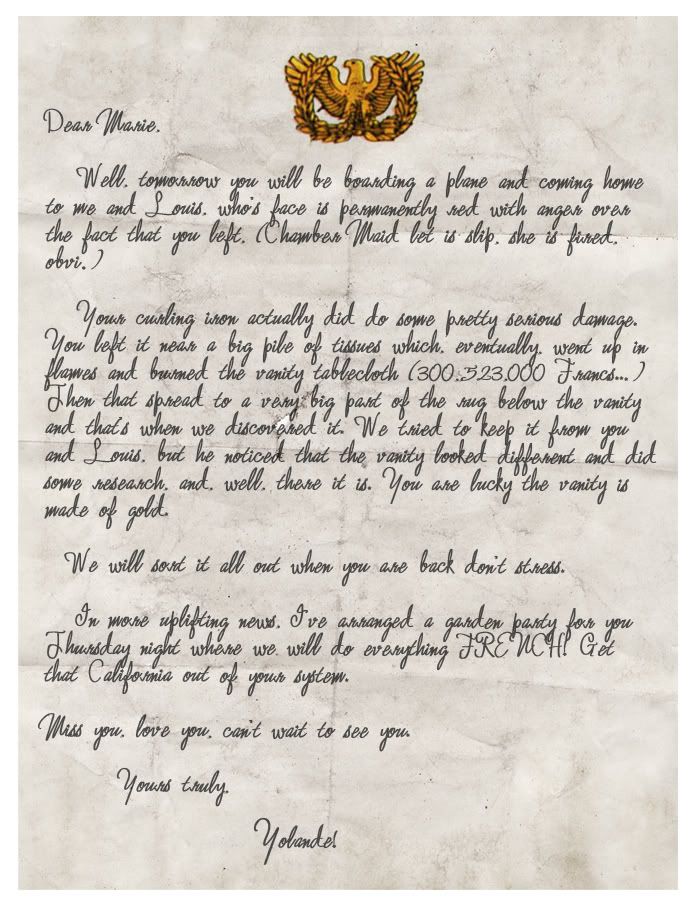 Dear Marie,
Well, tomorrow you will be boarding a plane and coming home
to me and Louis, who's face is permanently red with anger over
the fact that you left. (Chamber Maid let is slip, she is fired,
obvi. )
Your curling iron actually did do some pretty serious damage.
You left it near a big pile of tissues which, eventually, went up in
flames and burned the vanity tablecloth (300,523,000 Francs...)
Then that spread to a very big part of the rug below the vanity
and that's when we discovered it. We tried to keep it from you
and Louis, but he noticed that the vanity looked different and did
some research, and, well, there it is. You are lucky the vanity is
made of gold.
We will sort it all out when you are back don't stress.
In more uplifting news, I've arranged a garden party for you
Thursday night where we will do everything FRENCH! Get
that California out of your system.
Miss you, love you, can't wait to see you.
Yours truly,
Yolande!